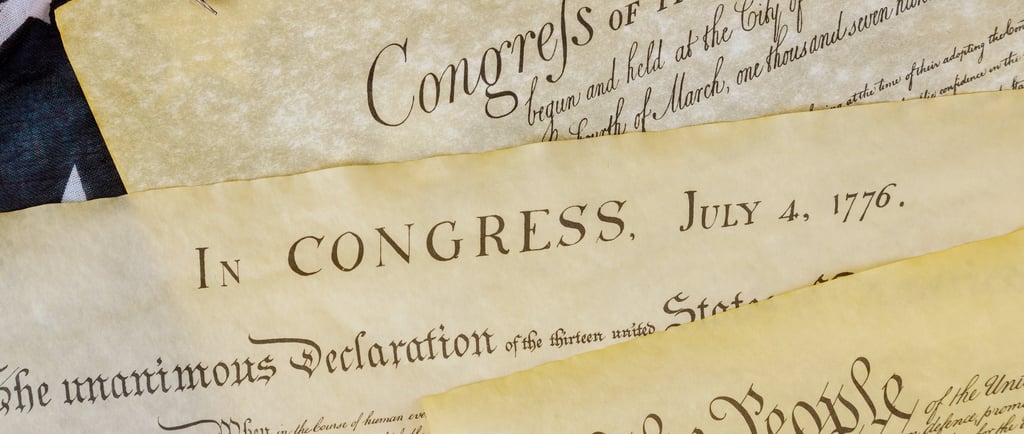 Congreſs OF
begun and held at the City of
Fourth of March, one thousand and seven
at the time of their adopting the
confidence in the
In CONGRESS, July 4, 1776.
The unanimous Declaration of the thirteen united States
When in the Course of human
the People of the
defence,